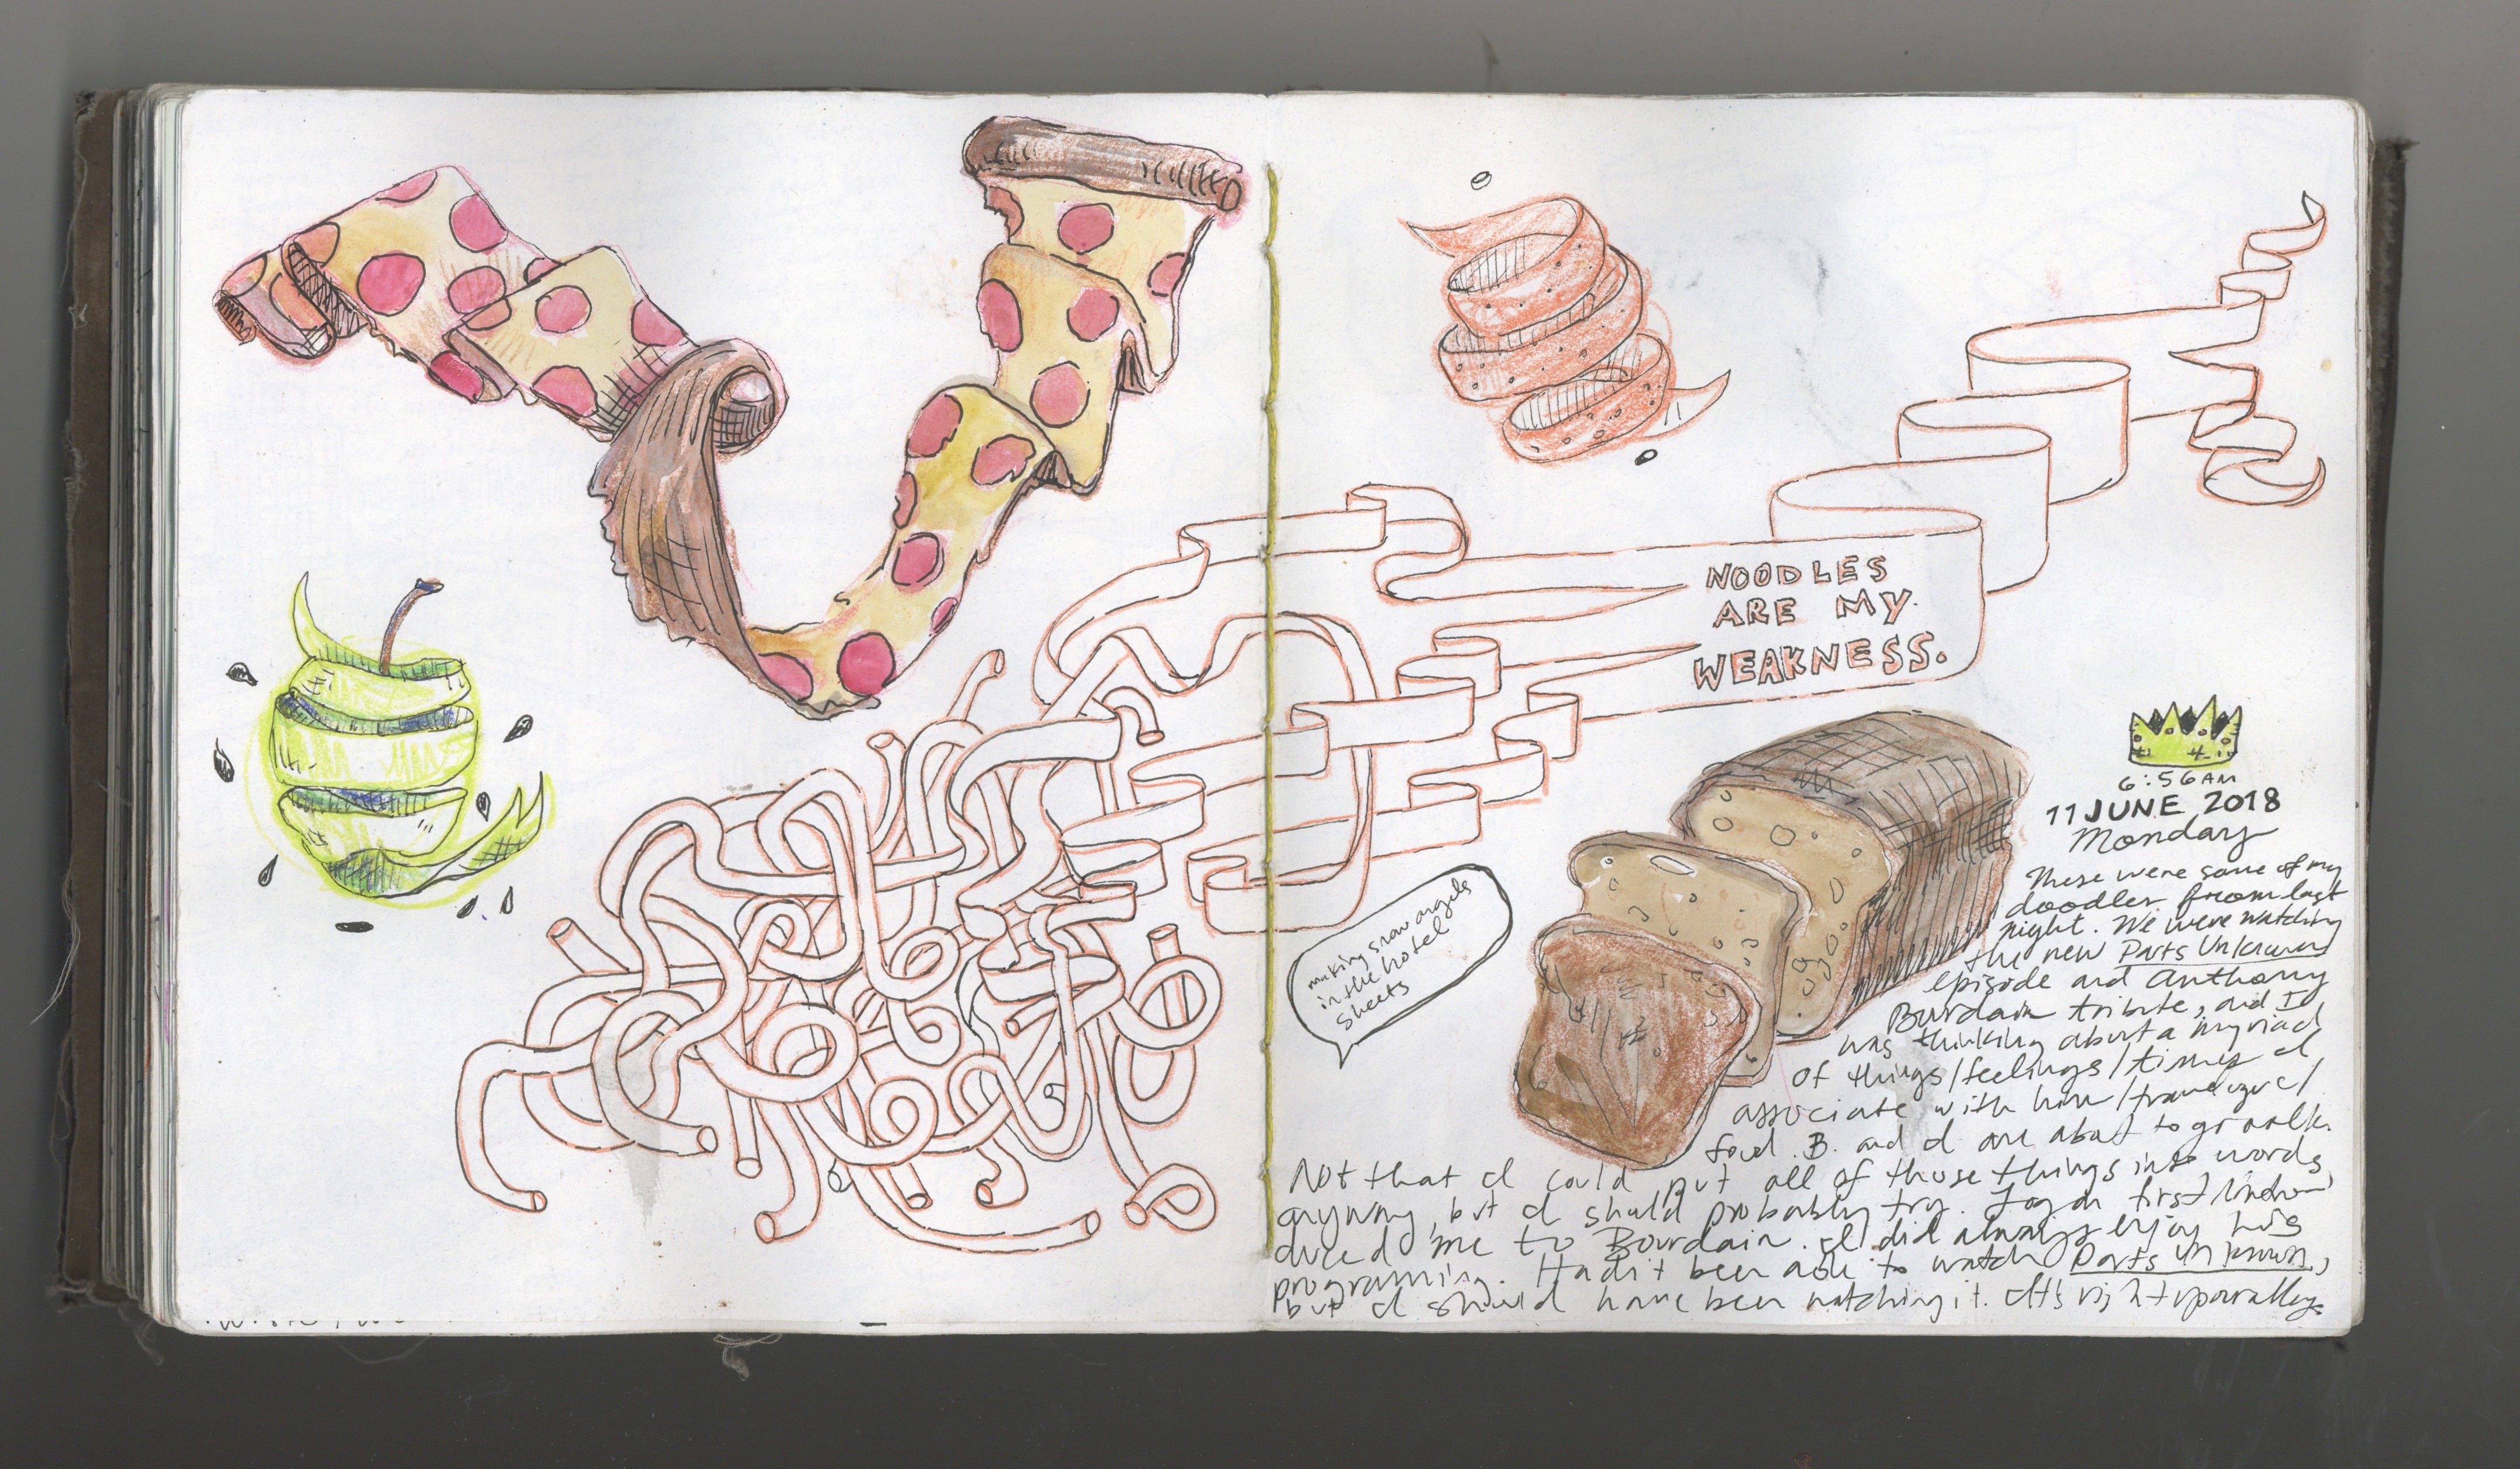 NOODLES
ARE MY
WEAKNESS.
6:56AM
11 JUNE 2018
Monday
making snow angels
in the hotel
sheets
These were some of my
doodles from last
night. We were watching
the new Parts Unknown
episode and Anthony
Bourdain tribute, and I
was thinking about a myriad
of things/feelings/times I
associate with him/
food. B. and I are about to go walk.
Not that I could put all of those things into words
anyway, but I should probably try. first intro
duced me to Bourdain. I did always enjoy his
programming. Hadn't been able to watch Parts Unknown,
but I should have been watching it. It's right up our alley.